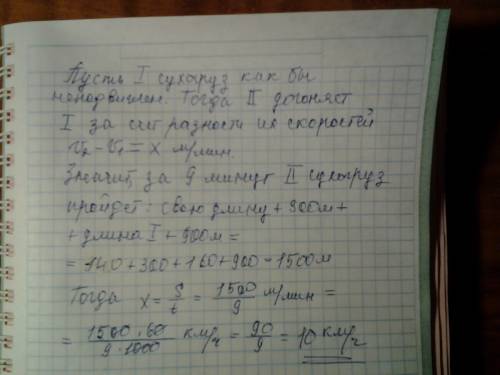 Пусть I сухогруз как бы
неподвижен. Тогда II догоняет
I за счёт разности их скоростей
v₂ - v₁ = x м/мин.
Значит, за 9 минут II сухогруз
пройдет: свою длину + 300м +
+ длина I + 900м =
= 140 + 300 + 160 + 900 = 1500м
Тогда x = S/t = 1500/9 м/мин =
= 1500·60/9·1000 км/ч = 90/9 = 10 км/ч